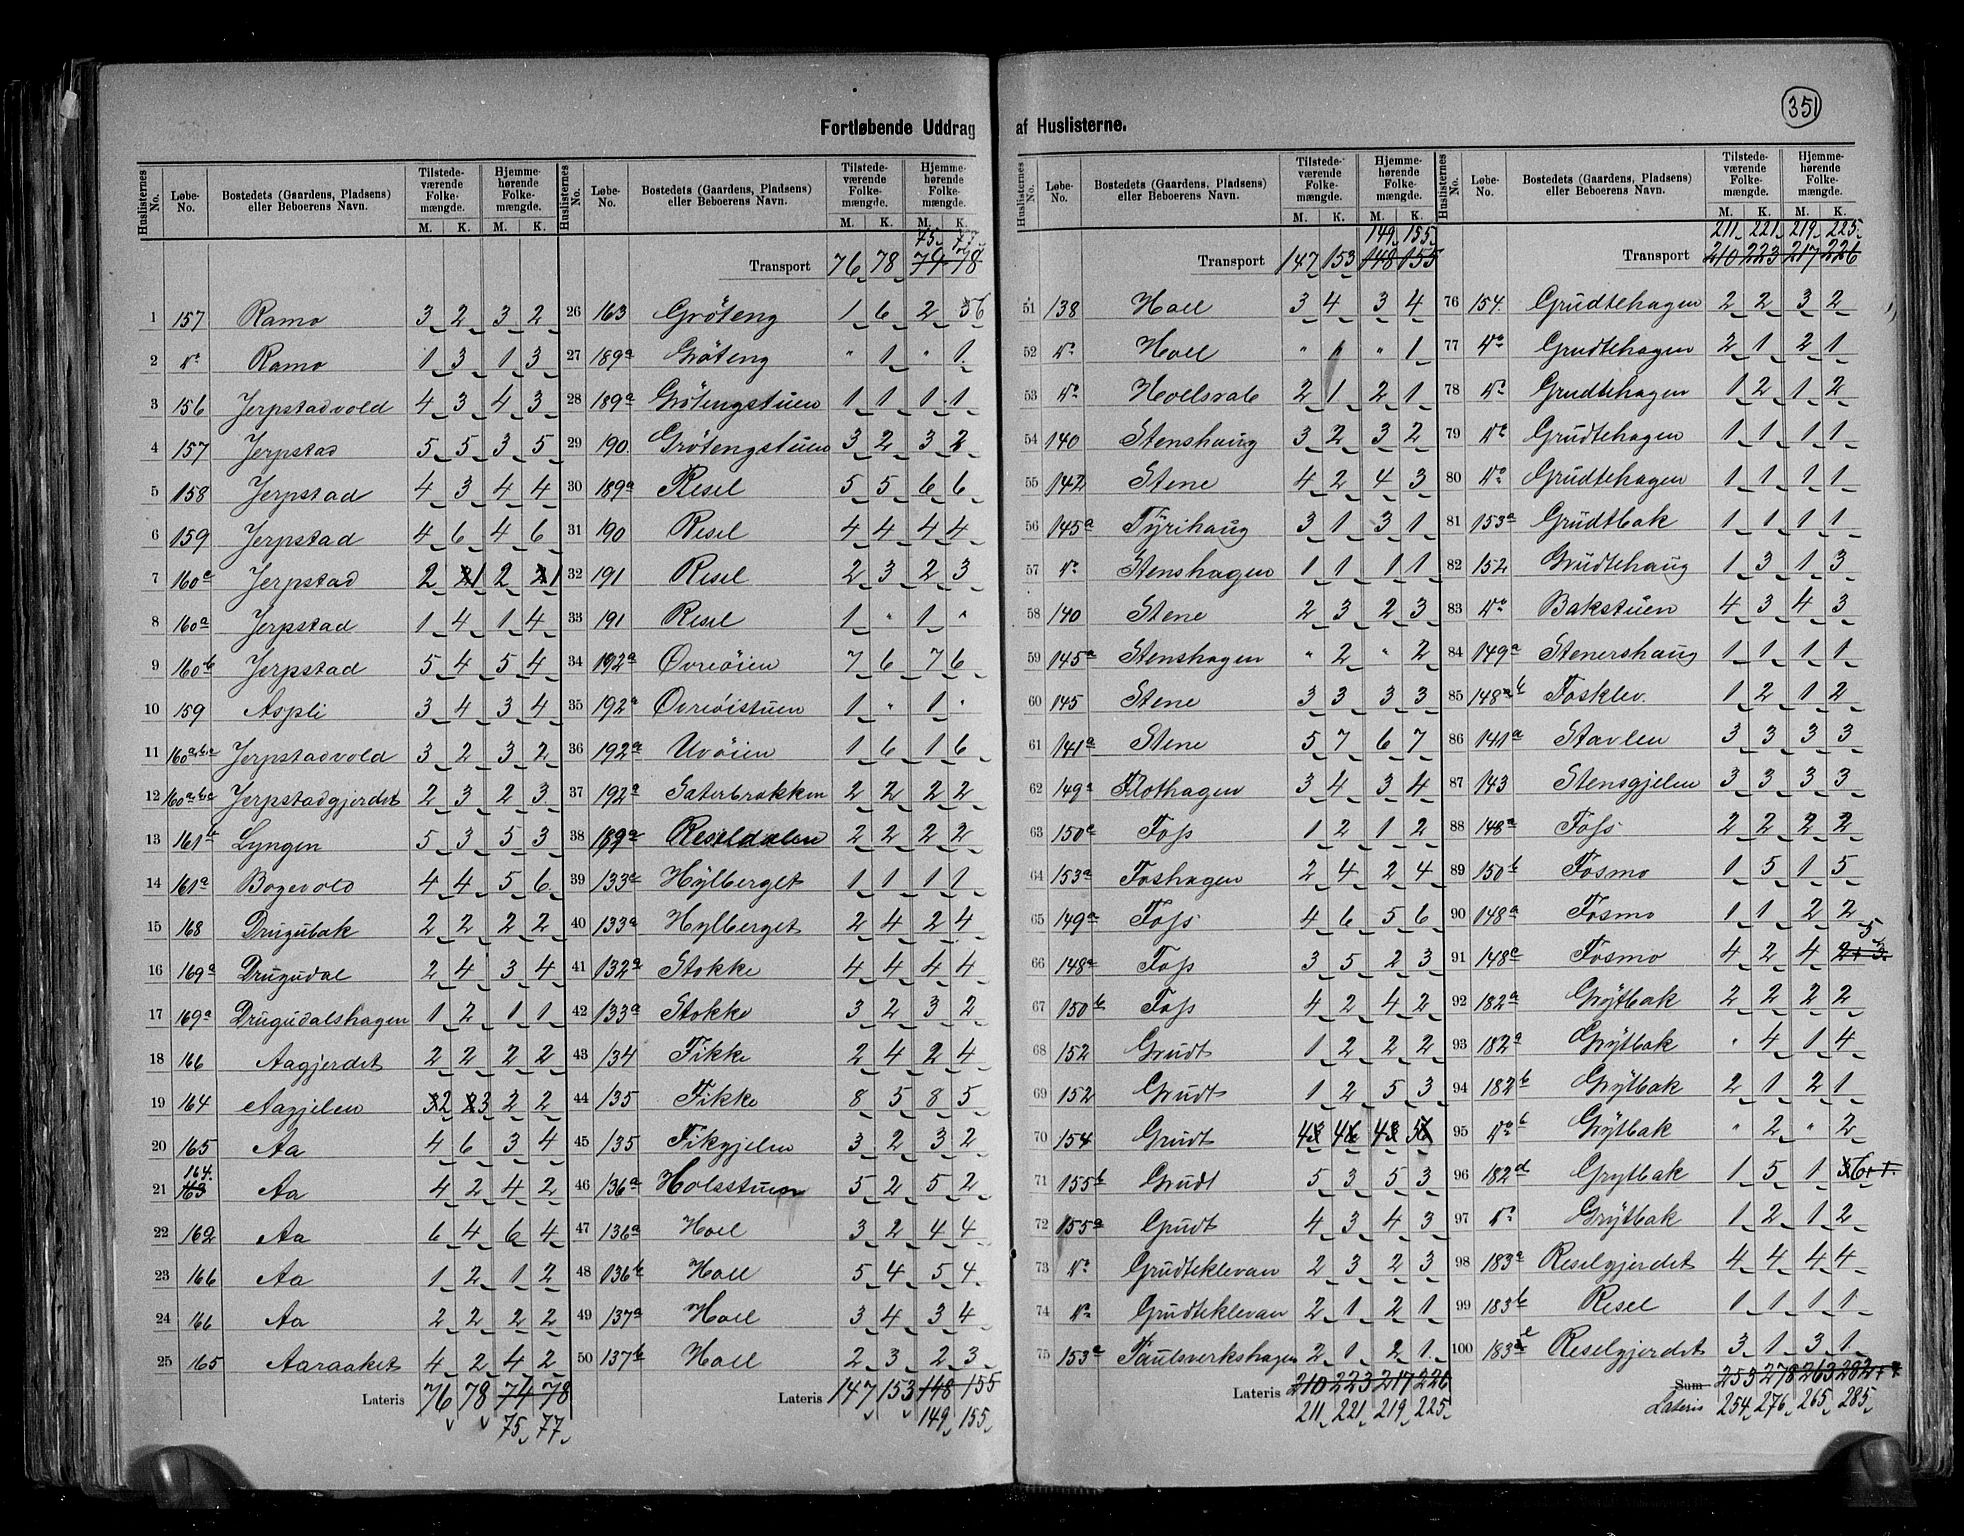 351
Fortløbende Uddrag af Huslisterne.
Huslisternes No. Løbe-No. Bostedets (Gaardens, Pladsens) eller Beboerens Navn. Tilstedeværende Folkemængde. M. K. Hjemmehørende Folkemængde. M. K.
1 157 Ramo 3 2 3 2
2 Do Ramo 1 3 1 3
3 156 Jerpstadvold 4 3 4 3
4 157 Jerpstad 5 5 3 5
5 158 Jerpstad 4 3 4 4
6 159 Jerpstad 4 6 4 6
7 160a Jerpstad 2 1 2 1
8 160a Jerpstad 1 4 1 4
9 160b Jerpstad 5 4 5 4
10 159 Aspli 3 4 3 4
11 160a,b,a Jerpstadvold 3 2 3 2
12 160a,b,a Jerpstadgjerdet 2 3 2 3
13 161b Lyngen 5 3 5 3
14 161a Bogevold 4 4 5 6
15 168 Drugubak 2 2 2 2
16 169a Drugudal 2 4 3 4
17 169a Drugudalshagen 1 2 1 1
18 166 Aagjerdet 2 2 2 2
19 164 Aagjelen 2 3 2 2
20 165 Aa 4 6 3 4
21 164 Aa 4 2 4 2
22 162 Aa 6 4 6 4
23 166 Aa 1 2 1 2
24 166 Aa 2 2 2 2
25 165 Aaraaket 4 2 4 2
Lateris 76 78 74 78
75 77
75 77
Transport 76 78 74 78
26 163 Gröteng 1 6 2 6
27 189a Gröteng " 1 " 1
28 189a Grötengstuen 1 1 1 1
29 190 Grötengstuen 3 2 3 2
30 189a Resel 5 5 6 6
31 190 Resel 4 4 4 4
32 191 Resel 2 3 2 3
33 191 Resel 1 " 1 "
34 192a Ovreöien 7 6 7 6
35 192a Ovreöistuen 1 " 1 "
36 192a Uvöien 1 6 1 6
37 192a Saterbrakken 2 2 2 2
38 189a Reseldalen 2 2 2 2
39 133a Hylberget 1 1 1 1
40 133a Hylberget 2 4 2 4
41 132a Stokke 4 4 4 4
42 133a Stokke 3 2 3 2
43 134 Fikke 2 4 2 4
44 135 Fikke 8 5 8 5
45 135 Fikgjelen 3 2 3 2
46 136a Holsstuen 5 2 5 2
47 136a Hoel 3 2 4 4
48 136b Hoel 5 4 5 4
49 137a Hoel 3 4 3 4
50 137b Hoel 2 3 2 3
Lateris 147 153 148 155
149 155
149 155
Transport 147 153 148 155
51 138 Hoel 3 4 3 4
52 Do Hoel " 1 " 1
53 Do Hoelsvale 2 1 2 1
54 140 Stenshaug 3 2 3 2
55 142 Stene 4 2 4 3
56 145a Tyrihaug 3 1 3 1
57 Do Stenshagen 1 1 1 1
58 140 Stene 2 3 2 3
59 145a Stenshagen " 2 " 2
60 145 Stene 3 3 3 3
61 141a Stene 5 7 6 7
62 149a Flothagen 3 4 3 4
63 150a Foss 1 2 1 2
64 153a Foshagen 2 4 2 4
65 149a Foss 4 6 5 6
66 148a Foss 3 5 2 3
67 150b Foss 4 2 4 2
68 152 Grudt 1 2 2 2
69 152 Grudt 1 2 5 3
70 154 Grudt 4 4 4 5
71 155b Grudt 5 3 5 3
72 155a Grudt 4 3 4 3
73 Do Grudteklevan 2 3 2 3
74 Do Grudteklevan 2 1 2 1
75 153a Paulsverkshagen 2 1 2 1
Lateris 210 223 217 226
211 221 219 225
211 221 219 225
Transport 210 223 217 226
76 154 Grudtehagen 2 2 3 2
77 Do Grudtehagen 2 1 2 1
78 Do Grudtehagen 1 2 1 2
79 Do Grudtehagen 1 1 1 1
80 Do Grudtehagen 1 1 1 1
81 153a Grudtbak 1 1 1 1
82 152 Grudtehaug 1 3 1 3
83 Do Bakstuen 4 3 4 3
84 149a Stenershaug 1 1 1 1
85 148a b Fosklev. 1 2 1 2
86 141a Stavlen 3 3 3 3
87 143 Stensgjelen 3 3 3 3
88 148a Foss 2 2 2 2
89 150b Fosmo 1 5 1 5
90 148a Fosmo 1 1 2 2
91 148a Fosmo 4 2 4 2+3 5
92 182a Grytbak 2 2 2 2
93 182a Grytbak " 4 1 4
94 182b Grytbak 2 1 2 1
95 Do b Grytbak " 2 " 2
96 182d Grytbak 1 5 1 6+1
97 Do Grytbak 1 2 1 2
98 183a Reselgjerdet 4 4 4 4
99 183b Resel 1 1 1 1
100 183 Reselgjerdet 3 1 3 1
Sum 253 278 263 282+4
Lateris 254 276 265 285